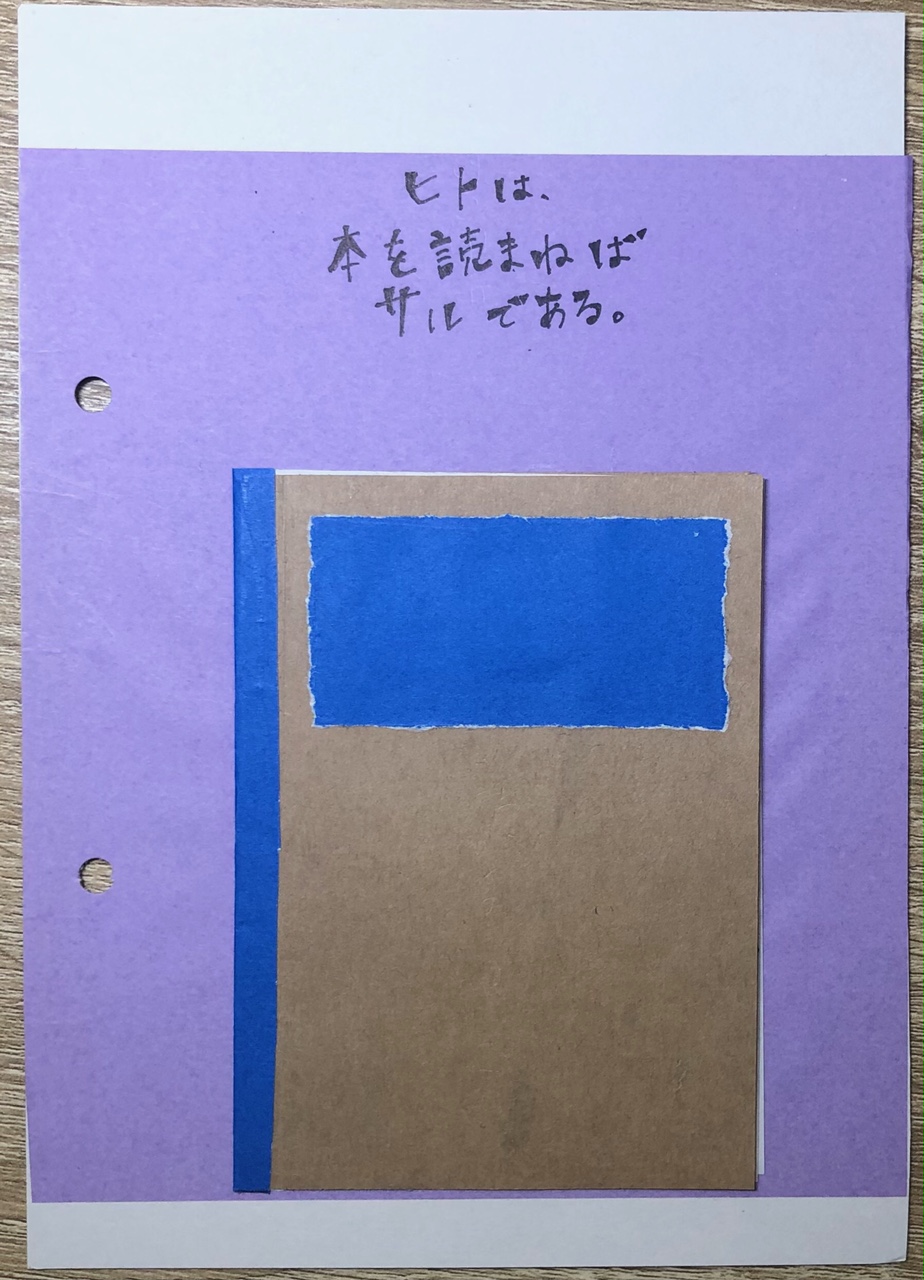 ヒトは、
本を読まねば
サルである。